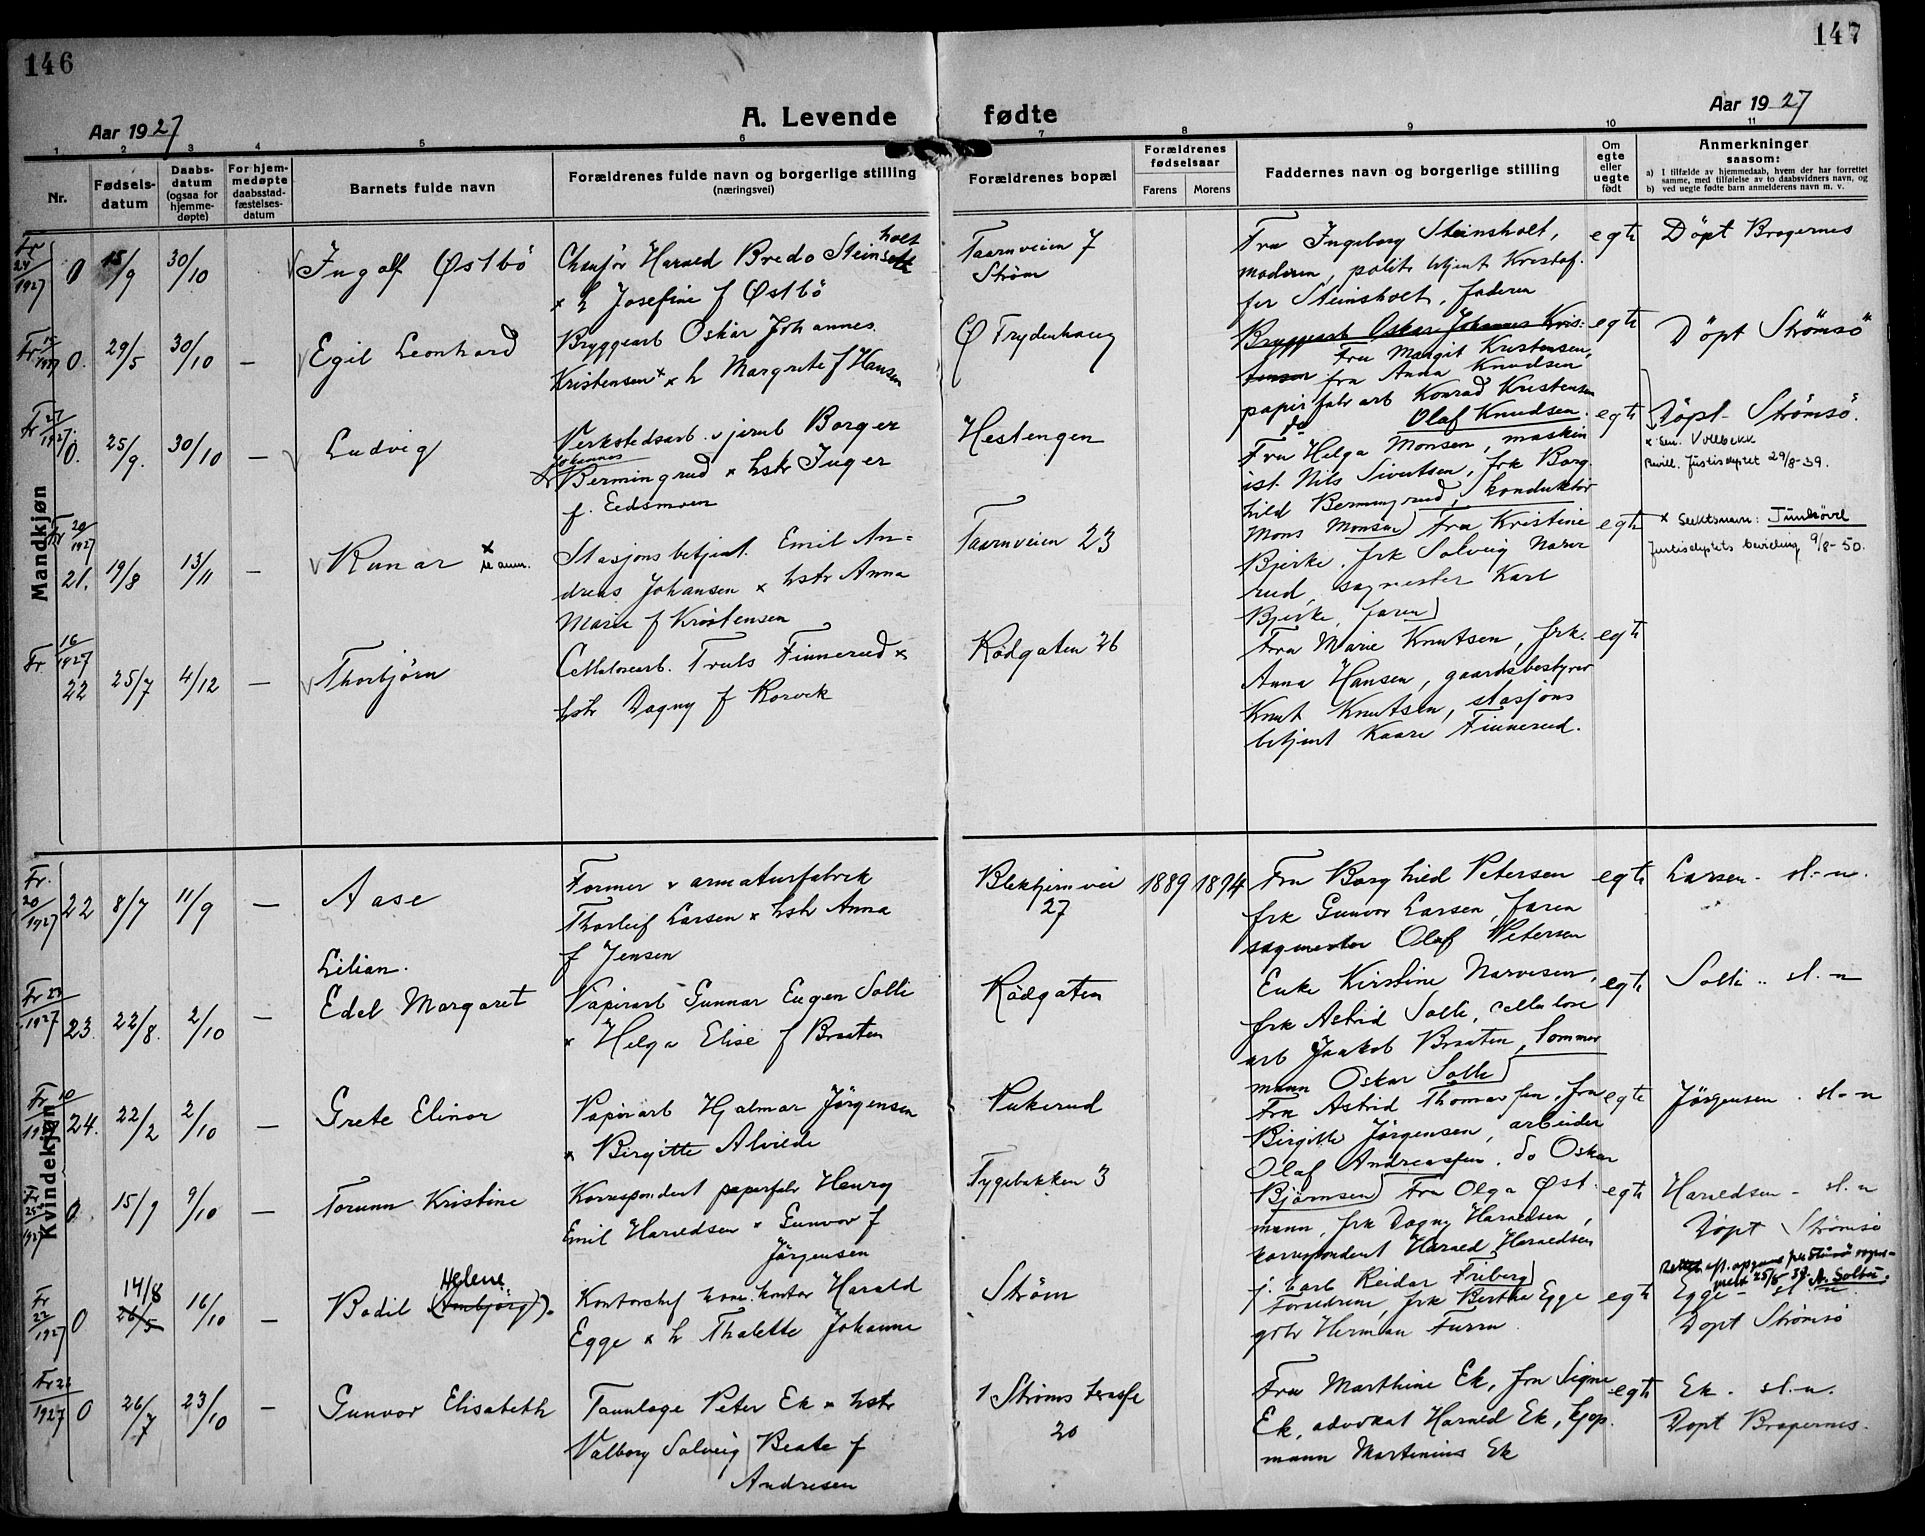 146
147
Aar 1927
A. Levende fødte
Aar 1927
1 2 3 4 5 6 7 8 9 10 11
Nr.
Fødsels-
datum
Daabs-
datum
(ogsaa for
hjemme-
døpte)
For hjem-
medøpte
daabsstad-
fæstelses-
datum
Barnets fulde navn
Forældrenes fulde navn og borgerlige stilling
(næringsvei)
Forældrenes bopæl
Forældrenes
fødselsaar
Farens Morens
Faddernes navn og borgerlige stilling
Om
egte
eller
uegte
født
Anmerkninger
saasom:
a) I tilfælde av hjemmedaab, hvem der har forrettet
samme, med tilføielse av to daabsvidners navn, og
b) ved uegte fødte barn anmelderens navn m. v.
Mandkjøn
Fr 24/1927 0 15/9 30/10
Ingolf Østbö
Chauför Harald Bredo Steinsholt
x h Josefine f Østbö
Taarnveien 7
Strøm
Fru Ingeborg Steinsholt,
moderen, politibetjent Kristof-
fer Steinsholt, faderen
egte
Döpt Bragernes
0. 29/5 30/10 —
Egil Leonhard
Bryggearb Oskar Johannes
Kristensen x h Margrete f Hansen
Frydenhaug
Bryggearb Oskar Johannes Kris-
tensen Fru Margit Kristensen,
fru Anna Knudsen
papirfabr arb Konrad Kristensen
do Olaf Knudsen.
egte
Döpt Strömsö
Fr 27/1927 0. 25/9. 30/10 —
Ludvig
Verkstedsarb. v jernb Borger
Johannes
Bermingrud x hstr Inger
f. Eedsmoen
Hestengen
Fru Helga Monsen, maskin
ist Nils Sivertsen, frk Borg
hild Bermingrud, konduktör
Mons Monsen
egte
Döpt Strömsö.
Bevill. Justisdeptet 29/8-39.
Fr 20/1927 21. 19/8 13/11 —
Runar x
se anm.
Stasjonsbetjent Emil An=
dreas Johansen x hstr Anna
Marie f Kristensen
Taarnveien 23
Fru Kristine
Bjerke, frk Solveig Narve
rud, sagmester Karl
Bjerke, faren
egte
x Slektsnavn:
Justisdeptets bevilling 9/8-50.
Fr 16/1927 22 25/7 4/12 —
Thorbjørn
Cellulosearb. Truls Finnerud x
hstr Dagny f Rorvik
Rödgaten 26
Fru Marie Knutsen, frk.
Anna Hansen, gaardsbestyrer
Knut Knutsen, stasjons
betjent Kaare Finnerud.
egte
Kvindekjøn
Fr. 20/1927 22 8/7 11/9 —
Aase
Former v armaturfabrik
Thorleif Larsen x hstr Anna
f Jensen
Blekhjemvei
27
1889 1894
Fru Borghild Petersen
frk Gunvor Larsen, faren
sagmester Olaf Petersen
egte
Larsen - sl.-n.
Fr 23/1927 23. 22/8. 2/10 —
Lilian.
Edel Margaret
Papirarb Gunnar Eugen Solli
x Helga Elise f Braaten
Rödgaten
Enke Kirstine Narvesen,
frk Astrid Solli, cellulose
arb Jaakob Braaten, Tommer
mann Oskar Solli
egte
Solli .. sl. n
24. 22/2 2/10 —
Grete Elinor
Papirarb Hjalmar Jörgensen
x Birgitte Alvilde
Pukerud
Fru Astrid Thomassen, fru
Birgitte Jörgensen, arbeider
Olaf Andreassen, do Oskar
Bjørnsen
egte
Jörgensen . sl-n
0. 15/9 9/10 —
Torunn Kristine
Korrespondent papirfabr Henry
Emil Haraldsen x Gunvor f
Jörgensen
Tygebakken 3
Fru Olga Øst-
mann, frk Dagny Haraldsen,
korrespondent Harald Haraldsen
j. b arb Reidar Friberg
egte
Haraldsen - sl. n
Döpt Strömsö
Fr 22/1927 0 14/8 26/5 16/10 —
Helene
Bodil (Ambjörg).
Kontorchef kom. kontor Harald
Egge x h Thalette Johanne
Strøm
Foreldrene, frk Bertha Egge
gbr Herman Furru
egte
Egge - sl. n.
Döpt Strömsö
Fr 22/1927 0 26/7 23/10 —
Gunvor Elisabeth
Tannlæge Peter Ek x hstr
Valborg Solveig Beate f
Andresen
1 Strøms terasse
20
Fru Marthine Ek, fru Signe
Ek, advokat Harald Ek, kjøp-
mann Martinius Ek
egte
Ek - sl.n.
Döpt Bragernes.